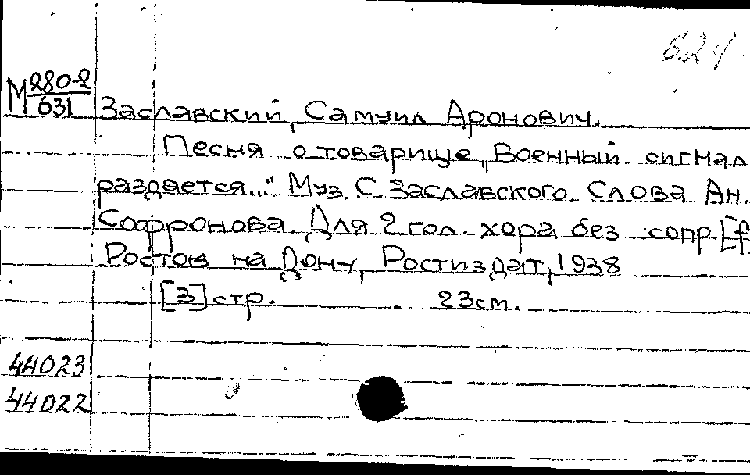 624
М 280-2
631
Заславский, Самуил Аронович.
Песня о товарище „Военный сигнал
раздается..." Муз. С. Заславского. Слова Ан.
Софронова. Для 2 гол. хора без сопр. [f.
Ростов на Дону, Ростиздат, 1938
[3] стр. 23см.
44023
44022